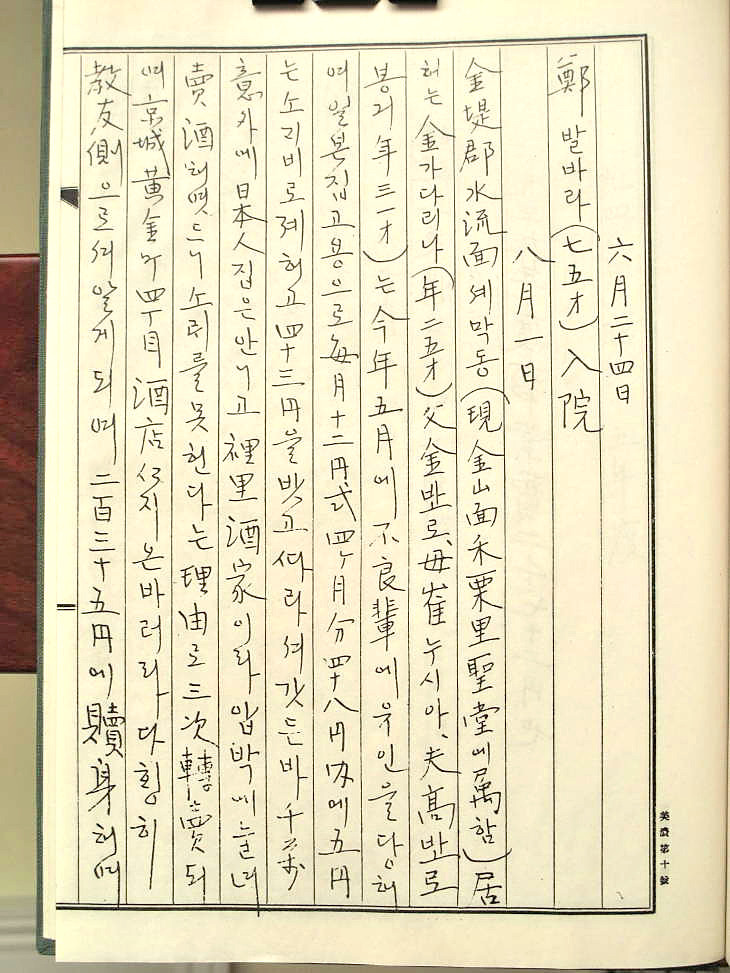 六月二十四日
鄭 발바라 (七五才) 入院
八月一日
金堤郡水流面 세막동 (現 金山面 禾栗里 聖堂에 属함) 居
허는 金가다리나 (年二五才) 父 金바로、毋 崔 누시아、夫 高바로
봉기 年三一才) 는 今年 五月에 不良輩에 유인을 당해
여 일본집 고용으로 每月 十二円式 四ヶ月分 四十八円 內에 五円
는 소리비로 졔허고 四十三円을 밧고 싸라셔 갓든바 千万
意外에 日本人집은 안니고 裡里 酒家이라 압박에 눌녀
賣酒허엿드니 소리를 못헌다는 理由로 三次 轉賣되
여 京城 黃金町 四丁目 酒店싯지 온바러라 다힝히
敎友側으로셔 알게 되여 二百三十五円에 贖身허여
美濃第十號